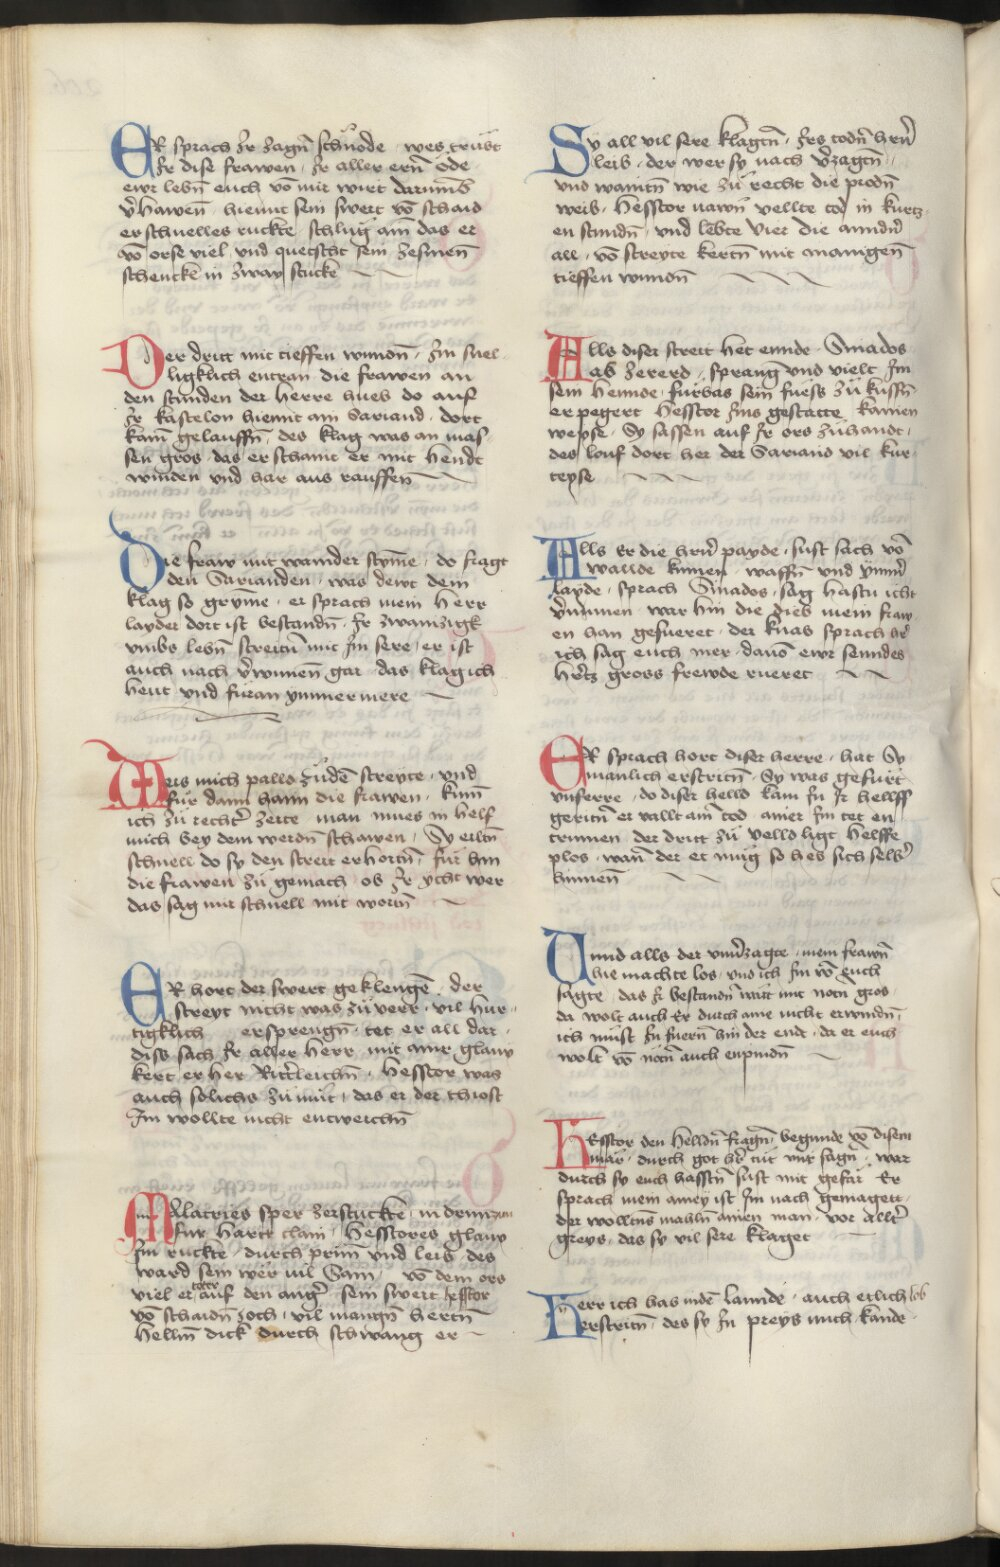 ER sprach Jr zagñ schnöde · wes trübt
Jr dise frawen · Jr aller ernn öde
ewr lebñ euch võ mir wirt darumb
v̉hawen · hiemit sein swert võ schaid
er schnelles ruckte · schlug ain das er
võ orse viel · vnd quetscht sein
schenckel in zway stucke
Der dritt mit tieffen wunndñ · Jm snel
ligklich entran · die frawen an
den stunden der herre hueb do auf
Jr kastelon hiemit ain Sariand · dort
kam gelauffñ · des klag was an mas
sen gros · das er schamt er mit hendt
winden vnd har aus rauffen
Die fraw mit wainnder stym̃e · do fragt
den Sarianden · was dewt dein
klag so grym̃e · er sprach mein herr
layder dort ist bestandñ · Jr zwainzigk
vmbs lebñ streittñ mit Jm sere · er ist
auch nach v̉wunnen gar · das klag ich
heut vnd füran ymmermere
Weis mich pallo zudẽ streyte · vnd
für dann hann die frawen · kum̃
ich zü rechtr̉ zeite · man mues in helf
mich bey dem werdñ schawen · Sy eiltñ
schnell do sy den streit erhortñ · für hin
die frawen zü gemach · ob Jr ycht wer
das sag mir schnell mit wortñ
ER hort der swert geklengẽ · der
streyt nicht was zü veer · vil hur
tigklich ersprengñ · tet er all dar ·
diss sach Jr aller herr · mit ainr glauy
kert er her Rittr̉leichñ · Hesstor was
auch solichs zü müt · das er der thiost
Im wollte nicht entweichñ
MAlatries sper zerstuckte · in drum̃zun
für hartt clain · Hesstores glauy
Jm ruckte · durch prün̄ vnd leib · des
ward sein wer vil Sam · võ dem ors
viel er toter auf den angr̉ · sein swert hesstor
võ schaidñ zoch · vil mangñ hertñ
hellm̃ dick durch schwang er
Sy all vil sere klagtñ · Jrs todñ hrñ
leib · der wer sy nach v̉zagtñ ·
vnd waintñ wie zü recht die prodñ
weib · Hesstor nawñ vellte tod in kurtz
en stundñ · vnd lebte vier die anndñ
all · võ streyte kertñ mit manigen
tieffen wundñ
Alls diser streit het ennde · Sinados
ab zererd · sprang vnd vielt Jm
sein hennde · fürbas sein füess zü küssñ
er pegert Hesstor Jms gestatte kainen
weyse · Sy sassen auf Jr ors zühandt ·
des louf dort her der Sariand vil kur
teyse
Alls Er die hrñ payde · sust sach võ
wallde kumen · waffñ vnd ymmr̉
layde · sprach Sinados · sag hastu icht
v̉numen war hin die dieb mein fraw
en han gefueret · der knab sprach hr̉
ich sag euch mer · dauõ ewr senndes
hertz gross frewde rueret
ER sprach hort diser herre · hat Sy
manlich erstrittñ · Sy was gefürt
vnferre · do diser helld kam Jn Jr hellff
gerittñ er vallt ain tod · ainer Jm tet en
trinnen · der dritt zü velld ligt helffe
plos · wañ der et müg so heb sich selbr̉
hinnen
Unnd alls der vnvr̉zagte · mein frawñ
hie machte los · vnd ich Jm võ euch
sagte · das Jr bestandñ wärt mit notñ gros ·
da wolt auch Er durch aine nicht erwindñ ·
ich müst Jn fuern hin der ende · da er euch
wolt võ nötñ auch enpindñ
HEsstor den helldñ fragñ begunde võ disem
mär · durch got hr̉ tüt mir sagñ · war
durch sy euch hasstñ sust mit gefär Er
sprach mein amey ist Jm nach gemagett ·
der wolltñs mahlñ ainen man · vor alltr̉
greys · das sy vil sere klaget
Herr ich has indẽ lannde · auch erlich lob
erstrittñ · des sy Jn preys mich kande ·